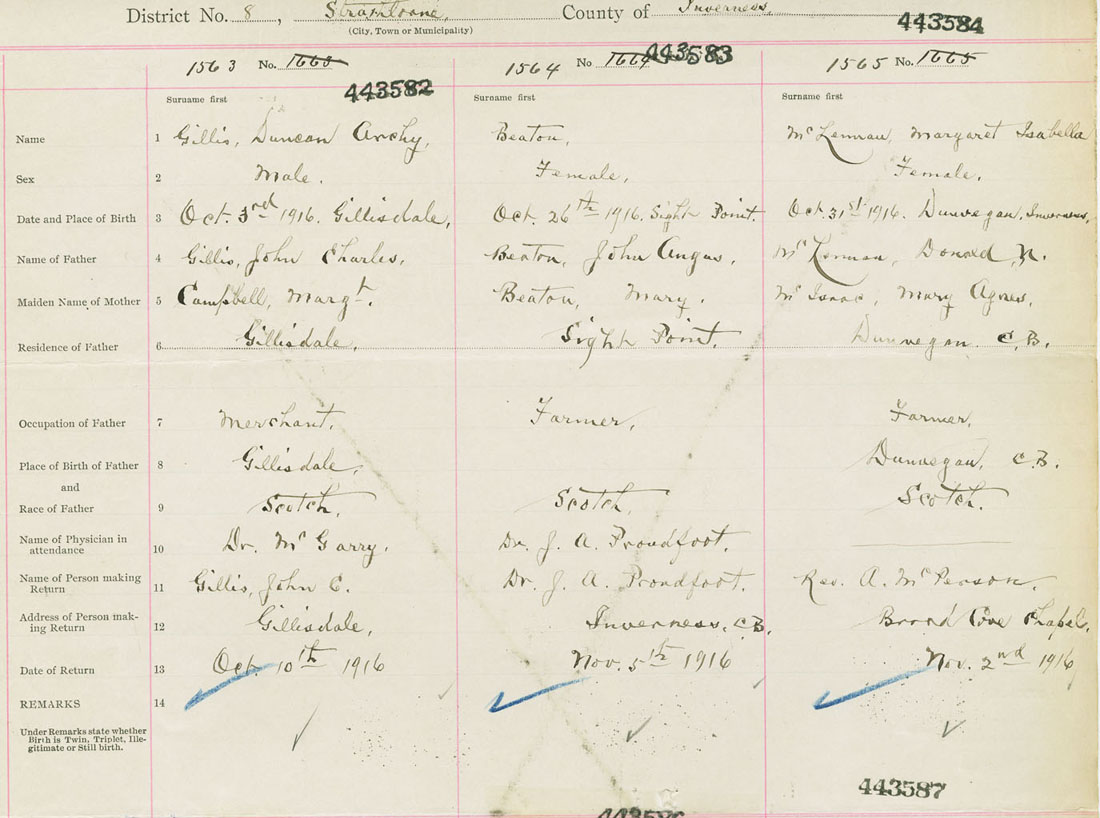 District No. 8, Strathlorne, County of Inverness.
(City, Town or Municipality)
443584
1563 No. 1663 1564 No 1664 443583 1565 No. 1665
443582
Surname first Surname first Surname first
Name 1 Gillis, Duncan Archy, Beaton, McLennan, Margaret Isabella
Sex 2 Male. Female. Female.
Date and Place of Birth 3 Oct. 3rd 1916. Gillisdale, Oct. 26th 1916. Sight Point. Oct. 31st 1916. Dunvegan, Inverness,
Name of Father 4 Gillis, John Charles, Beaton, John Angus, McLennan, Donald N.
Maiden Name of Mother 5 Campbell, Margt. Beaton, Mary. McIsaac, Mary Agnes,
Residence of Father 6 Gillisdale, Sight Point. Dunvegan. C.B.
Occupation of Father 7 Merchant, Farmer, Farmer,
Place of Birth of Father 8 Gillisdale, Dunvegan, C.B.
and
Race of Father 9 Scotch, Scotch, Scotch.
Name of Physician in
attendance 10 Dr. McGarry, Dr. J. A. Proudfoot.
Name of Person making
Return 11 Gillis, John C. Dr. J. A. Proudfoot. Rev. A. McPerson,
Address of Person mak-
ing Return 12 Gillisdale, Inverness, C.B. Broad Cove Chapel,
Date of Return 13 Oct. 10th 1916 Nov. 5th 1916 Nov. 2nd 1916
REMARKS 14
Under Remarks state whether
Birth is Twin, Triplet, Ille-
gitimate or Still birth.
443587